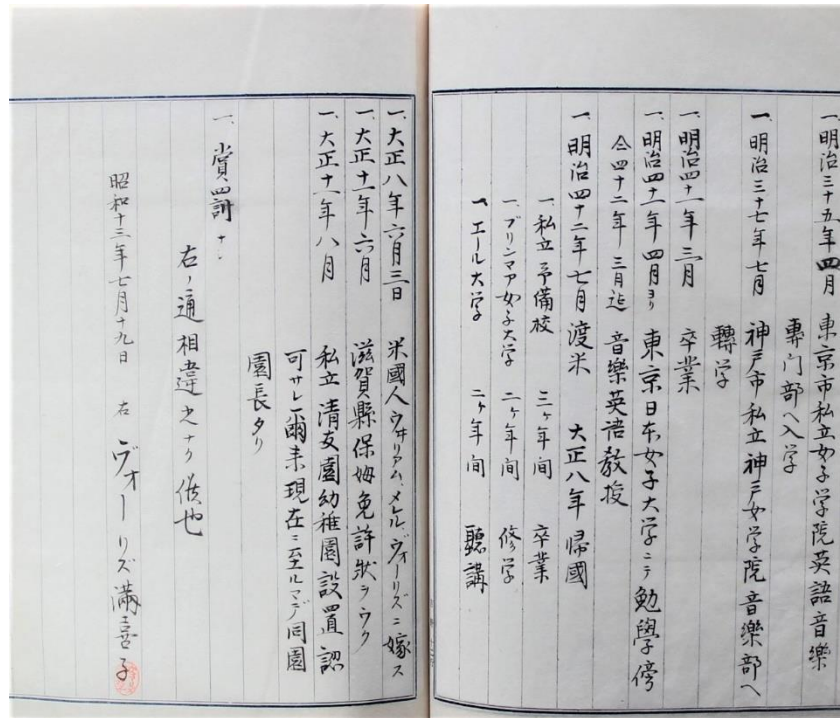 一、明治三十五年四月 東京市私立女子学院英語音樂
専門部へ入学
一、明治三十七年七月 神戸市私立神戸女学院音樂部へ
轉学
一、明治四十一年三月 卒業
一、明治四十一年四月ヨリ 東京日本女子大学ニテ勉學傍
仝四十二年三月迄 音樂英語教授
一、明治四十二年七月 渡米 大正八年帰國
一、私立予備校 三ヶ年间 卒業
一、ブリンマア女子大学 二ヶ年间 修学
一、エール大学 二ヶ年间 聽講
一、大正八年六月三日 米國人ウヰリアム、メレル、ヴォーリズニ嫁ス
一、大正十一年六月 滋賀縣保姆免許狀ヲウク
一、大正十一年八月 私立清友園幼稚園設置認
可サレ爾来現在ニ至ルマデ同園
園長タリ
一、賞罰 ナシ
右ノ通相違之ナク候也
昭和十三年七月十九日 右 ヴォーリズ満喜子